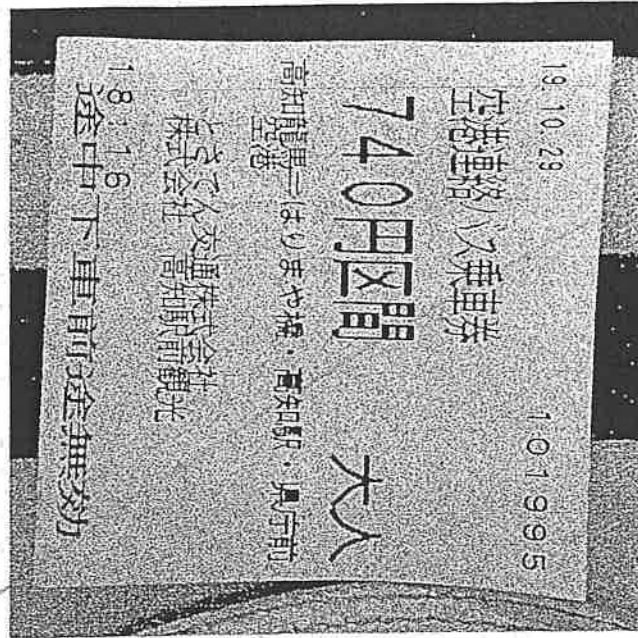 19.10.29
空港連絡バス乗車券
101995
740円区間
大人
高知龍馬空港=はりまや橋・高知駅・県庁前
とさでん交通株式会社
株式会社 高知駅前観光
18:16
途中下車前途無効